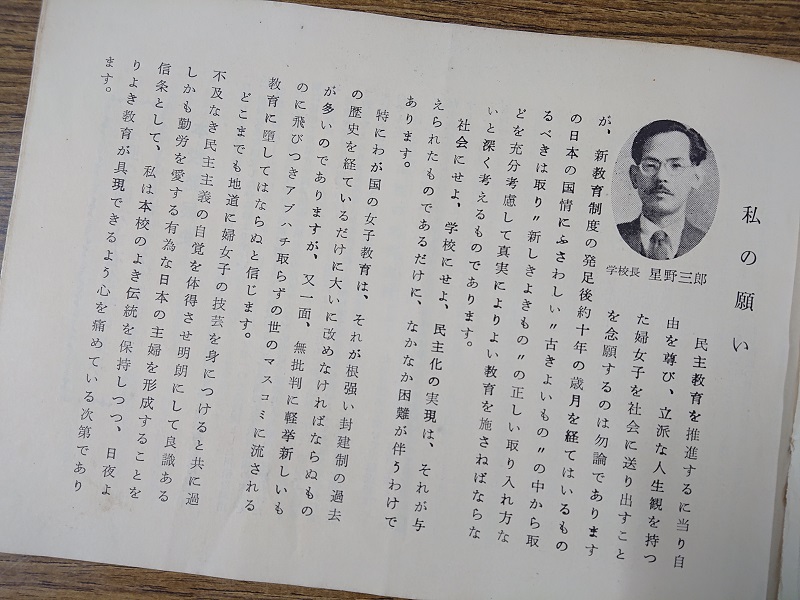 私の願い
学校長 星野三郎
民主教育を推進するに当り自
由を尊び、立派な人生観を持つ
た婦女子を社会に送り出すこと
を念願するのは勿論であります
が、新教育制度の発足後約十年の歳月を経てはいるもの
の日本の国情にふさわしい〃古きよいもの〃の中から取
るべきは取り〃新しきよきもの〃の正しい取り入れ方な
どを充分考慮して真実によりよい教育を施さねばならな
いと深く考えるものであります。
社会にせよ、学校にせよ、民主化の実現は、それが与
えられたものであるだけに、なかなか困難が伴うわけで
あります。
特にわが国の女子教育は、それが根强い封建制の過去
の歴史を経ているだけに大いに改めなければならぬもの
が多いのでありますが、又一面、無批判に軽挙新しいも
のに飛びつきアブハチ取らずの世のマスコミに流される
教育に堕してはならぬと信じます。
どこまでも地道に婦女子の技芸を身につけると共に過
不及なき民主主義の自覚を体得させ明朗にして良識ある
しかも勤労を愛する有為な日本の主婦を形成することを
信条として、私は本校のよき伝統を保持しつつ、日夜よ
りよき教育が具現できるよう心を痛めている次第であり
ます。